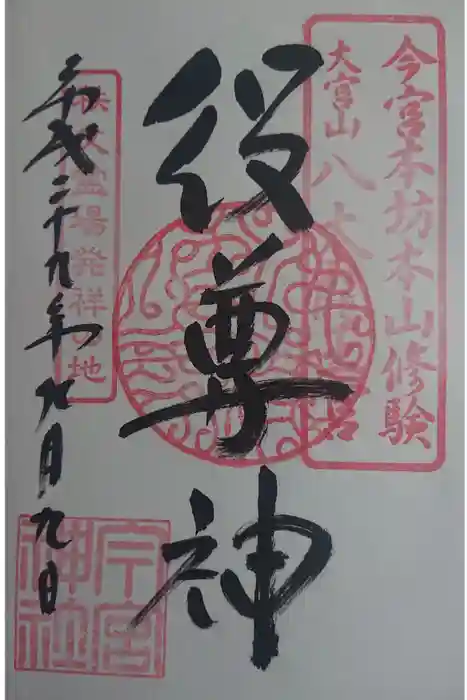 今宮本坊本山修験
大宮山八大
役尊神
秩父霊場発祥の地
平成二十九年九月九日
今宮
神社